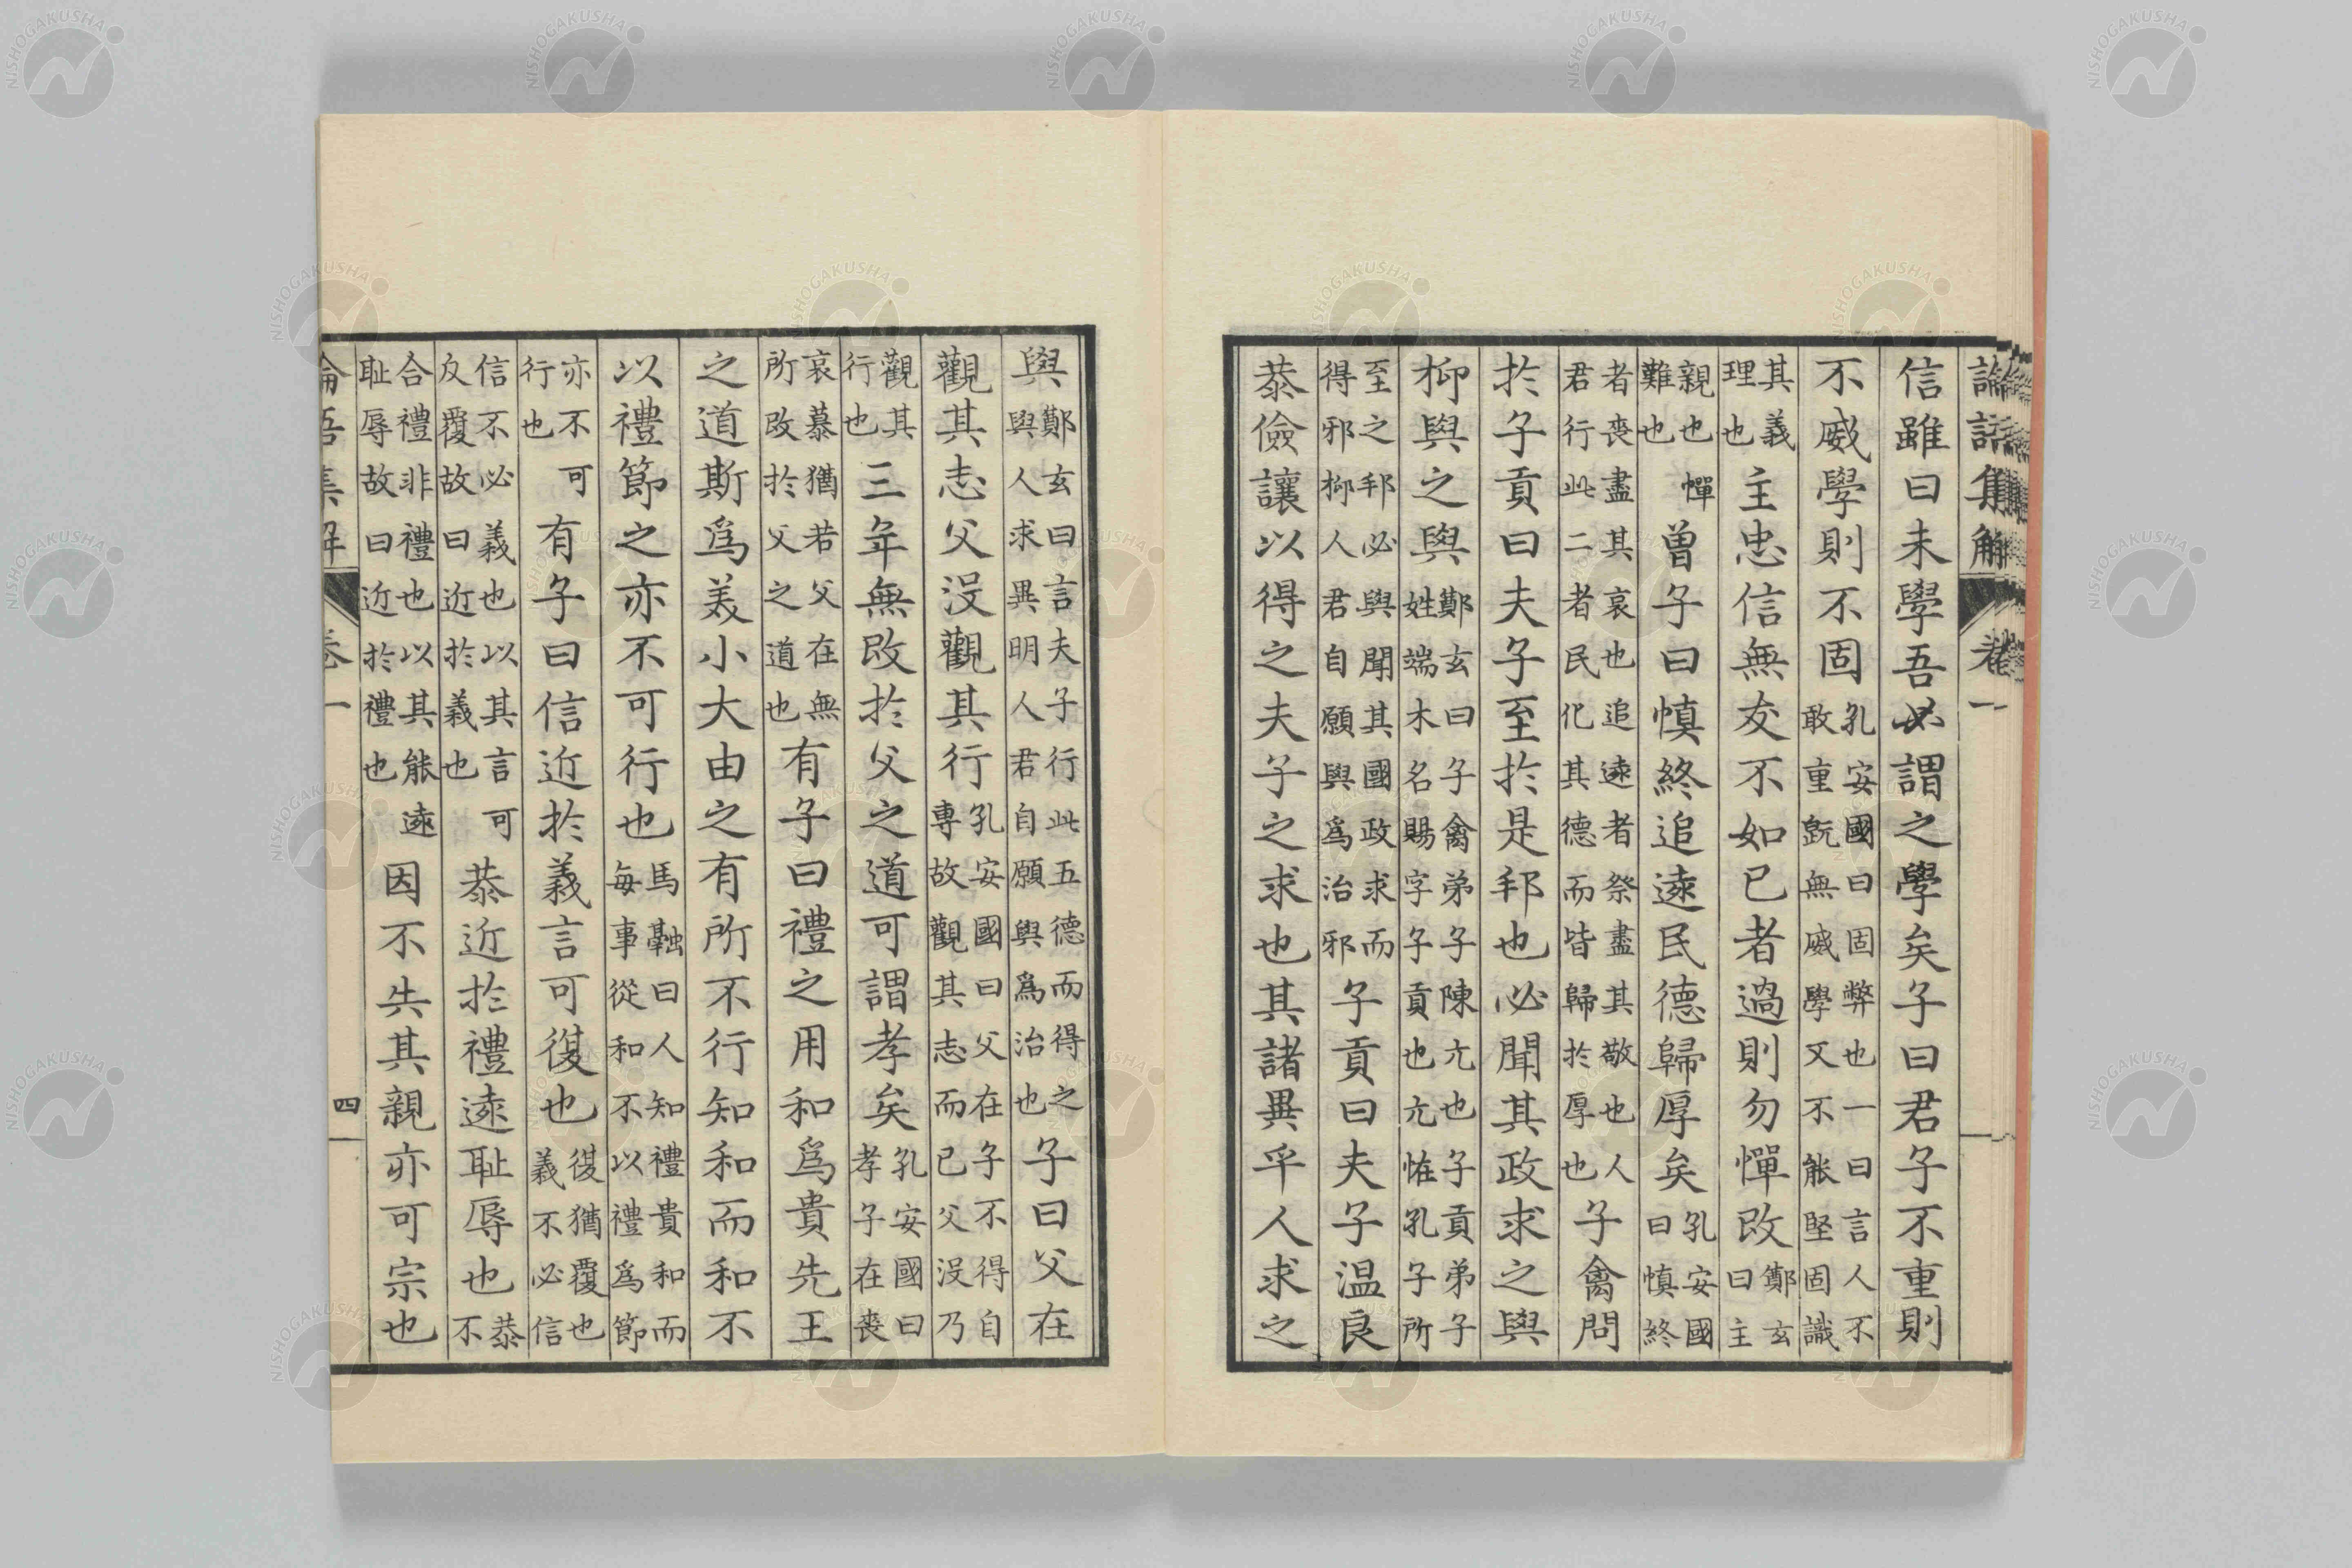 論語集解 卷一
信雖曰未學吾必謂之學矣子曰君子不重則
不威學則不固孔安國曰固弊也一曰言人不敢重旣無威學又不能堅固識
其義理也主忠信無友不如己者過則勿憚改鄭玄曰主
親也憚難也曾子曰慎終追遠民德歸厚矣孔安國曰慎終
者喪盡其哀也追遠者祭盡其敬也人君行此二者民化其德而皆歸於厚也子禽問
於子貢曰夫子至於是邦也必聞其政求之與
抑與之與鄭玄曰子禽弟子陳亢也子貢弟子姓端木名賜字子貢也亢恠孔子所
至之邦必與聞其國政求而得邪抑人君自願與爲治邪子貢曰夫子温良
恭儉讓以得之夫子之求也其諸異乎人求之
與鄭玄曰言夫子行此五德而得之與人求異明人君自願與爲治也子曰父在
觀其志父没觀其行孔安國曰父在子不得自專故觀其志而已父没乃
觀其行也三年無改於父之道可謂孝矣孔安國曰孝子在喪
哀慕猶若父在無所改於父之道也有子曰禮之用和爲貴先王
之道斯爲美小大由之有所不行知和而和不
以禮節之亦不可行也馬融曰人知禮貴和而每事從和不以禮爲節
亦不可行也有子曰信近於義言可復也復猶覆也義不必信
信不必義也以其言可反覆故曰近於義也恭近於禮遠耻辱也恭不
合禮非禮也以其能遠耻辱故曰近於禮也因不失其親亦可宗也
論語集解 卷一 四
NISHOGAKUSHA